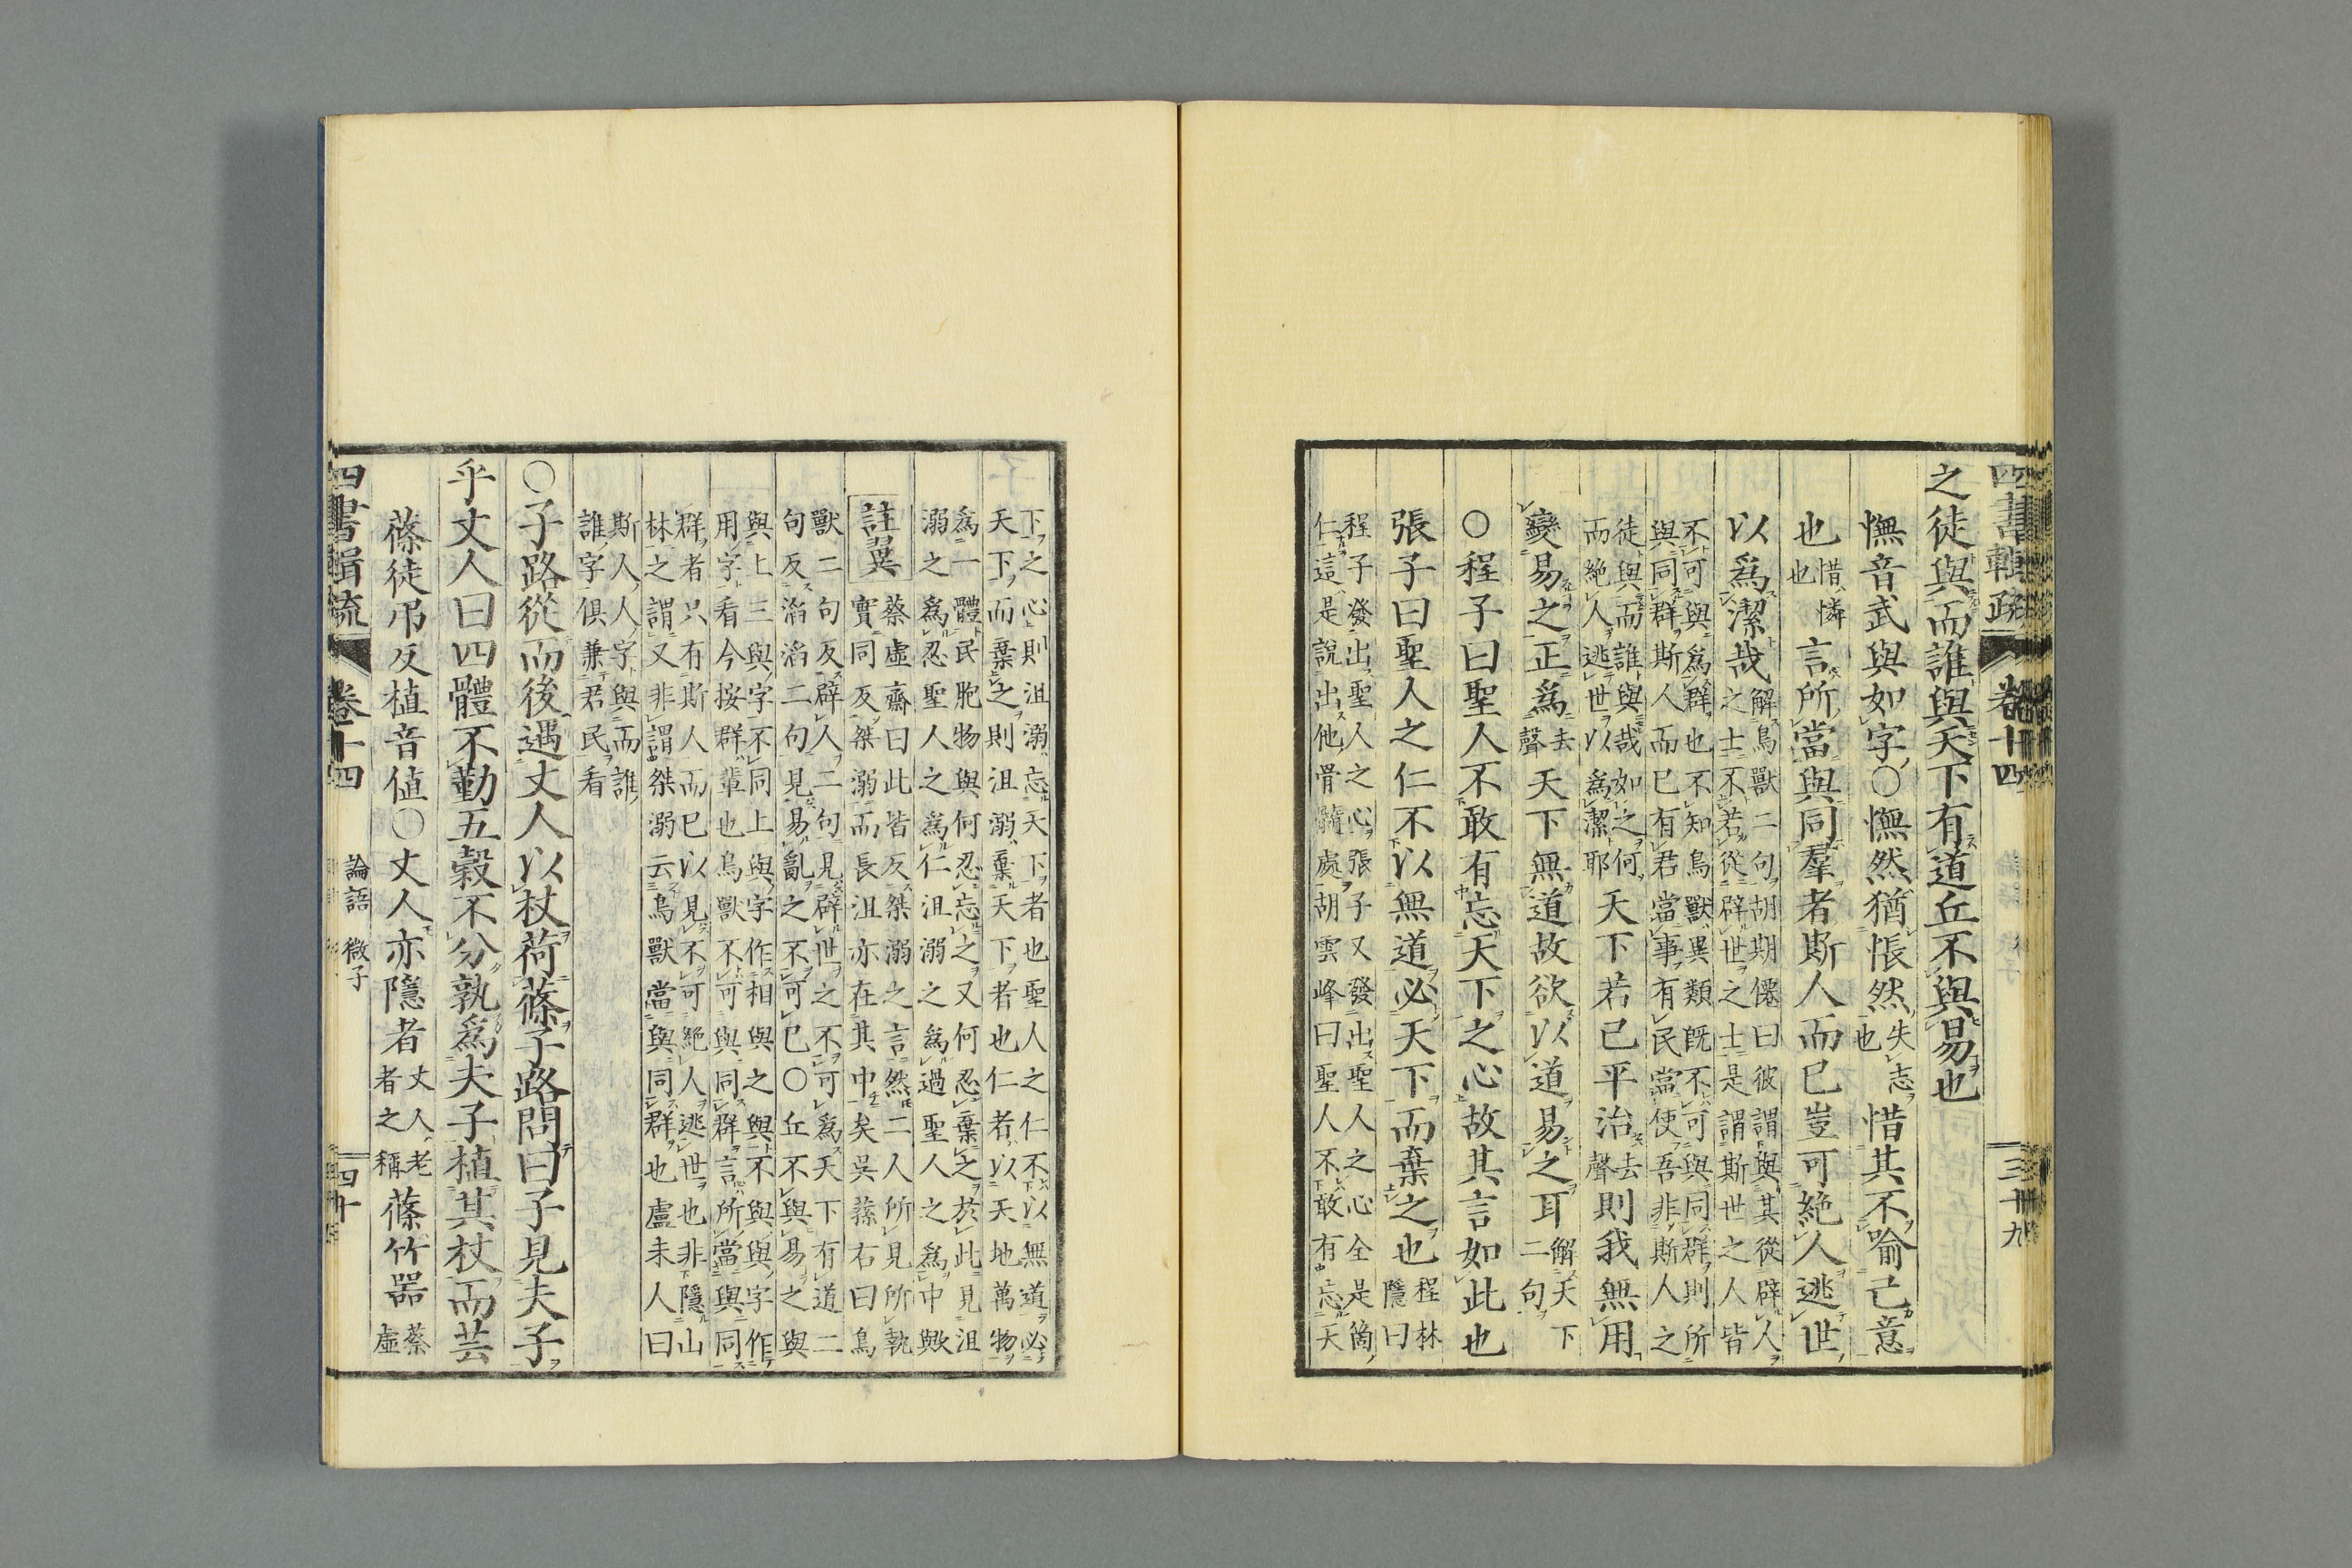 四書輯疏 卷十四 三十九
之徒與而誰與天下有道丘不與易也
憮音武與如字○憮然猶悵然失志也惜其不喻己意
也惜憐也言所當與同羣者斯人而已豈可絶人逃世
以爲潔哉解鳥獸二句胡期僊曰彼謂與其從辟人之士不若從辟世之士是謂斯世之人皆
不可與爲群也不知鳥獸異類既不可與同群則所與同群斯人而已有君當事有民當使吾非斯人之
徒與而誰與哉如之何而絶人逃世以爲潔耶天下若已平治去聲則我無用
變易之正爲去聲天下無道故欲以道易之耳解天下二句
○程子曰聖人不敢有忘天下之心故其言如此也
張子曰聖人之仁不以無道必天下而棄之也程林隱曰
程子發出聖人之心張子又發出聖人之心全是箇仁這是說出他骨髓處胡雲峰曰聖人不敢有忘天
下之心則沮溺忘天下者也聖人之仁不以無道必天下而棄之則沮溺棄天下者也仁者以天地萬物
爲一體民胞物與何忍忘之又何忍棄之於此見沮溺之爲忍聖人之爲仁沮溺之爲過聖人之爲中歟
註翼 蔡虛齋曰此皆反桀溺之言然二人所見所執實同反桀溺而長沮亦在其中矣吳蓀右曰鳥
獸二句反辟人二句見辟世之不可爲天下有道二句反滔滔二句見易亂之不可已○丘不與易之與
與上三與字不同上與字作相與之與不與與字作用字看今按群輩也鳥獸不可與同群言所當與同
群者只有斯人而已以見不可絶人逃世也非隱山林之謂又非謂桀溺云鳥獸當與同群也盧未人曰
斯人人字與而誰誰字俱兼君民看
○子路從而後遇丈人以杖荷蓧子路問曰子見夫子
乎丈人曰四體不勤五穀不分孰爲夫子植其杖而芸
蓧徒吊反植音値○丈人亦隱者丈人老者之稱蓧竹器蔡虛
四書輯疏 卷十四 論語 微子 四十